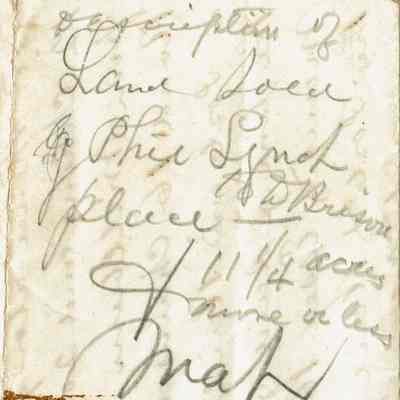 Description of
Land Sold
of Phil Lynch
place — to D Brison
11 1/4 acres
more or less
Map